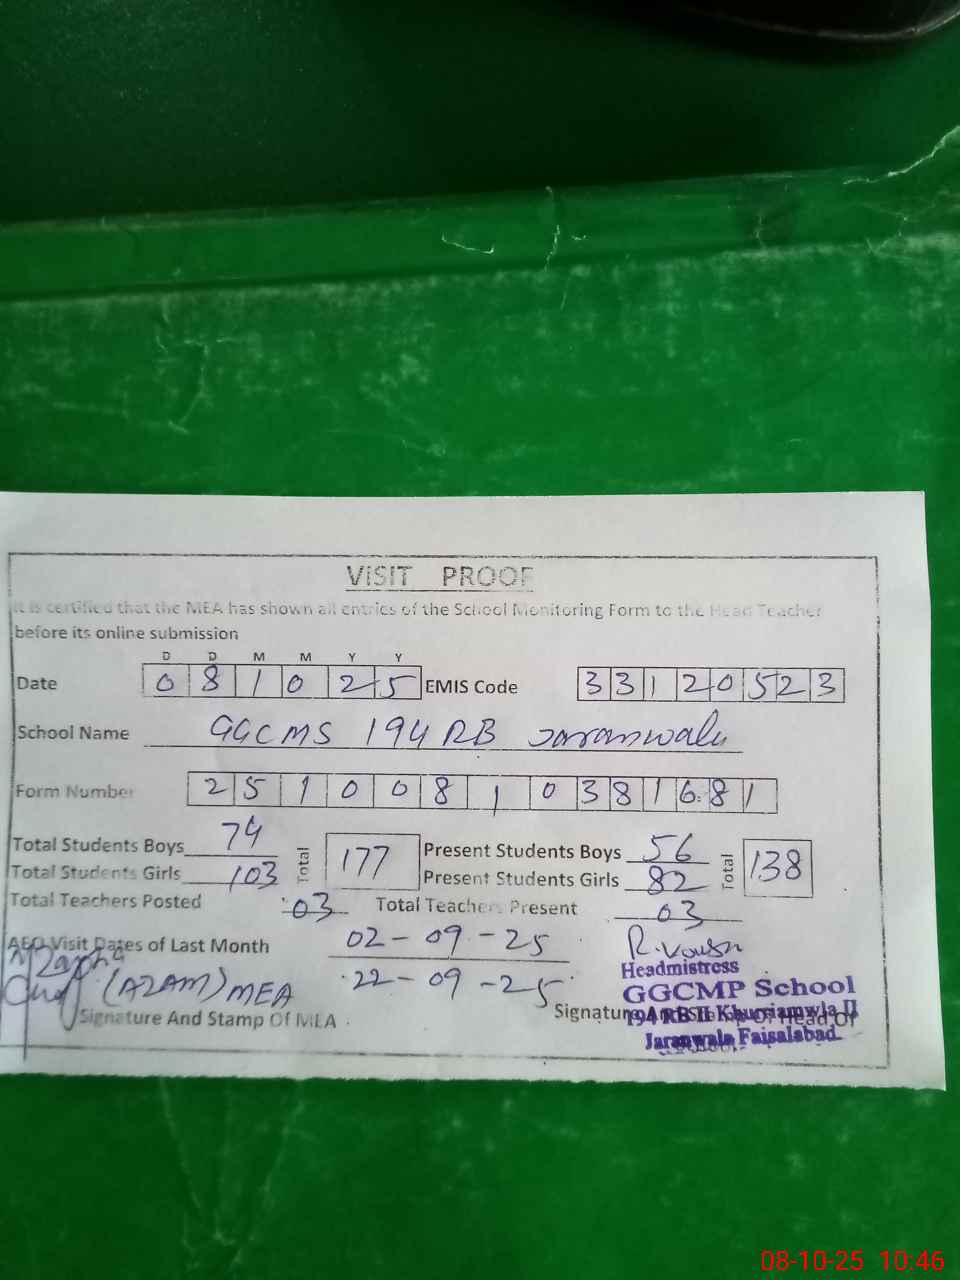 VISIT PROOF
It is certified that the MEA has shown all entries of the School Monitoring Form to the Head Teacher
before its online submission
D D M M Y Y
Date 0 8 1 0 2 5 EMIS Code 3 3 1 2 0 5 2 3
School Name GGCMS 194 RB Jaranwala
Form Number 2 5 1 0 0 8 1 0 3 8 1 6 8 1
Total Students Boys 74 Total 177 Present Students Boys 56 Total 138
Total Students Girls 103 Present Students Girls 82
Total Teachers Posted 03 Total Teachers Present 03
AEO Visit Dates of Last Month 02-09-25
22-09-25
(AZAM) MEA
Signature And Stamp Of MEA
Headmistress
GGCMP School
Signature And Stamp Of Head Of
194 RB II Khurrianwla II
Jaranwala Faisalabad
08-10-25 10:46